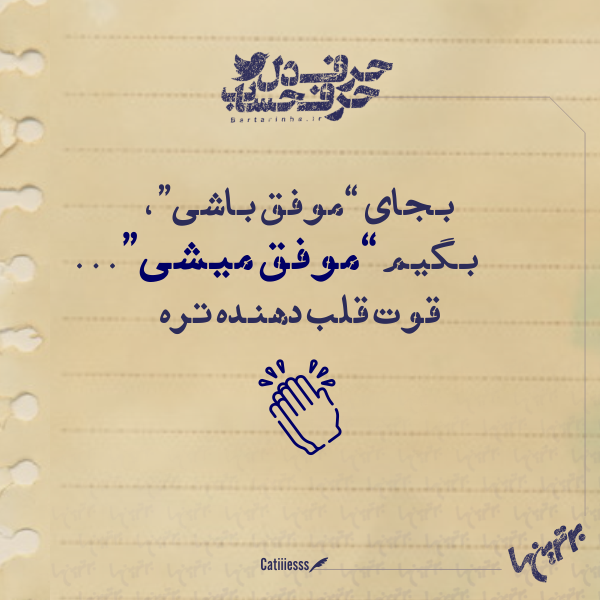 حرف دل
حرف حساب
Bartarinha.ir
بجای “موفق باشی”،
بگیم “موفق میشی”...
قوت قلب دهنده تره
Catiiiesss
برترینها